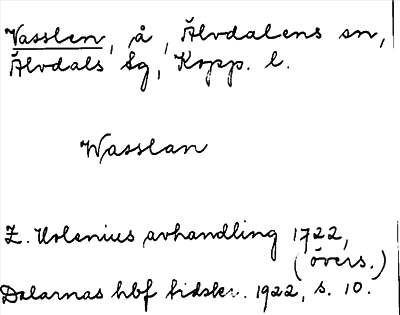 Vasslan, å, Älvdalens sn,
Älvdals tg, Kopp. l.
Wasslan
Z. Holenius avhandling 1722,
(övers.)
Dalarnas hbf tidskr. 1922, s. 10.